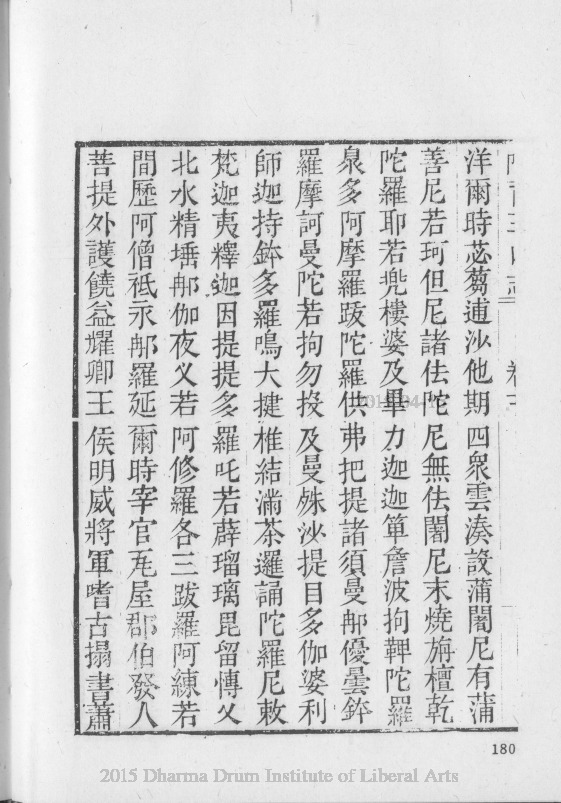 阿育王山志 卷十
洋爾時苾蒭逋沙他期四衆雲湊設蒲闍尼有蒲
善尼若珂但尼諸佉陀尼無佉闍尼末燒旃檀乾
陀羅耶若兜樓婆及畢力迦迦箄詹波拘鞞陀羅
泉多阿摩羅跋陀羅供弗把提諸須曼那優曇鉢
羅摩訶曼陀若拘勿投及曼殊沙提目多伽婆利
師迦持鉢多羅鳴大揵椎結滿茶邏誦陀羅尼敕
梵迦夷釋迦因提提多羅吒若薜瑠璃毘留慱叉
北水精埵那伽夜叉若阿修羅各三跋羅阿練若
間歷阿僧祗示那羅延爾時宰官瓦屋郡伯發人
菩提外護饒益耀卿王侯明威將軍嗜古搨書蕭
180
2015 Dharma Drum Institute of Liberal Arts